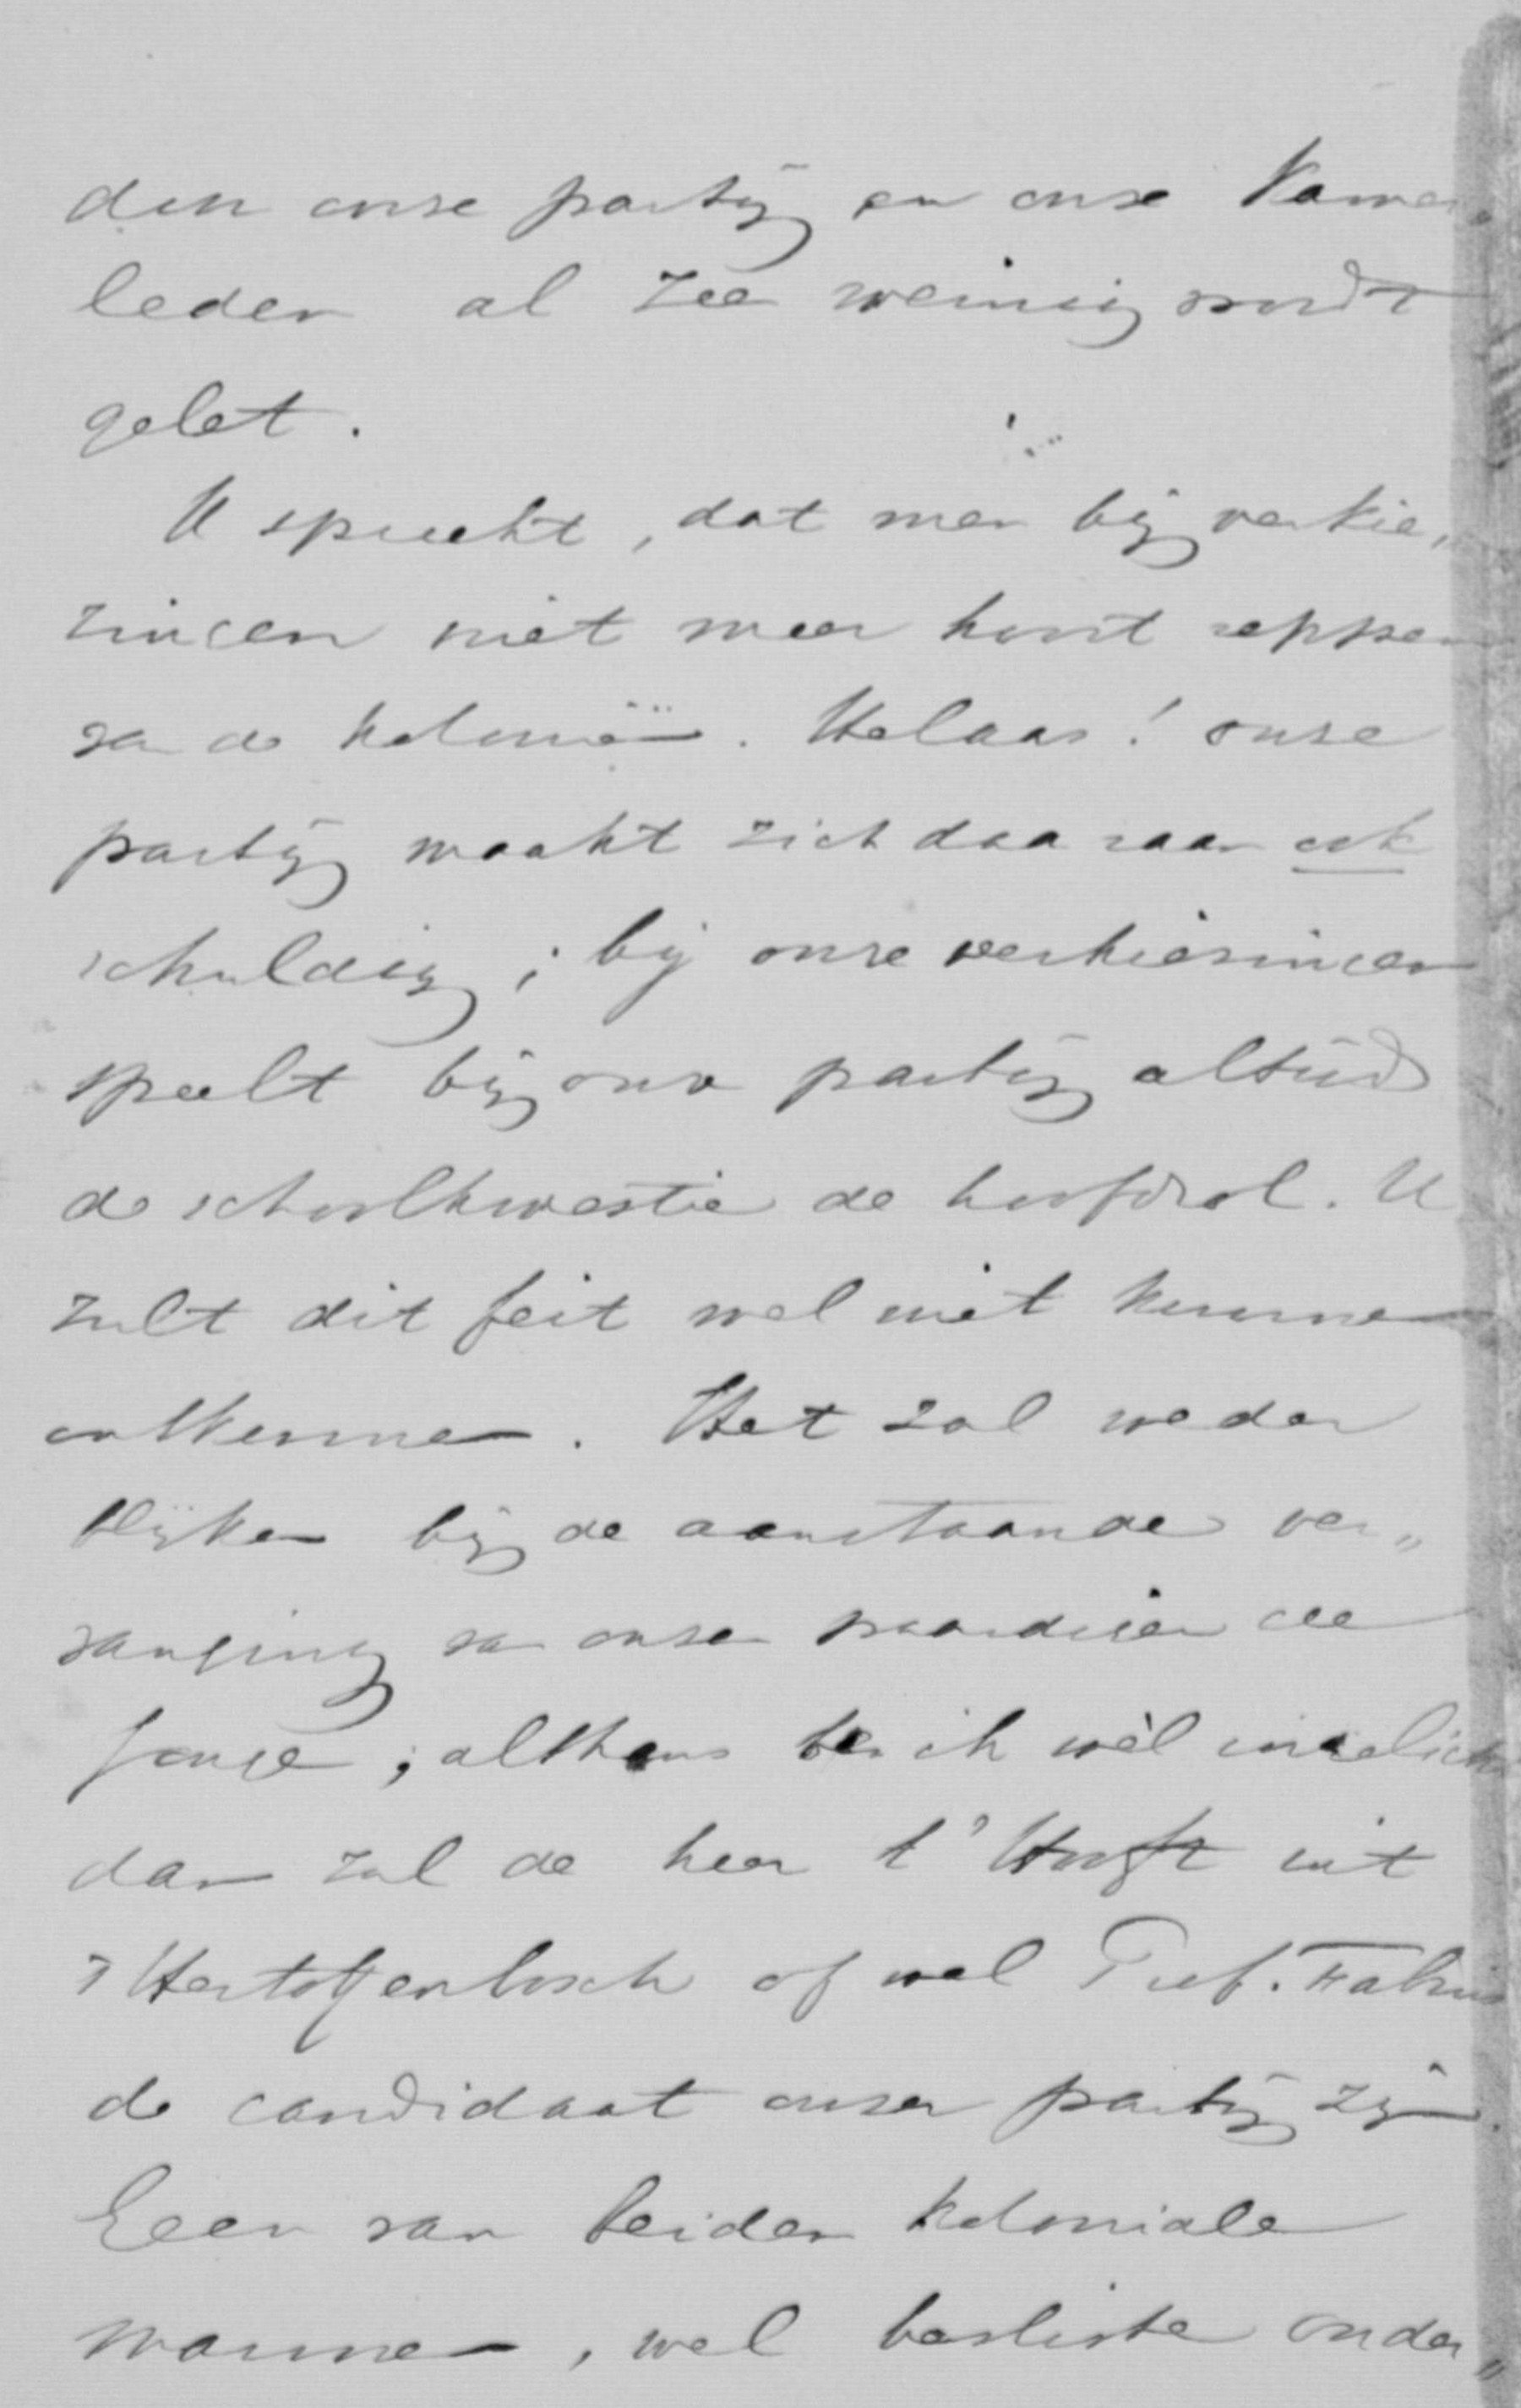 den onze partij en onze Kamer„
leden al zeer weinig wordt
gelet.
U spreekt, dat men bij verkie„
zingen niet meer hoort reppen
van de koloniën. Helaas! onze
partij maakt zich daaraan ook
schuldig; bij onze verkiezingen
speelt bij onze partij altijd
de schoolkwestie de hoofdrol. U
zult dit feit wel niet kunnen
ontkennen. Het zal weder
blijken bij de aanstaande ver„
vanging van onzen waardigen de
Jonge; althans ben ik wèl ingelicht
dan zal de heer t' Hooft uit
's Hertogenbosch of wel Prof. Fabius
de candidaat onzer partij zijn.
Geen van beiden koloniale
mannen, wel besliste onder„